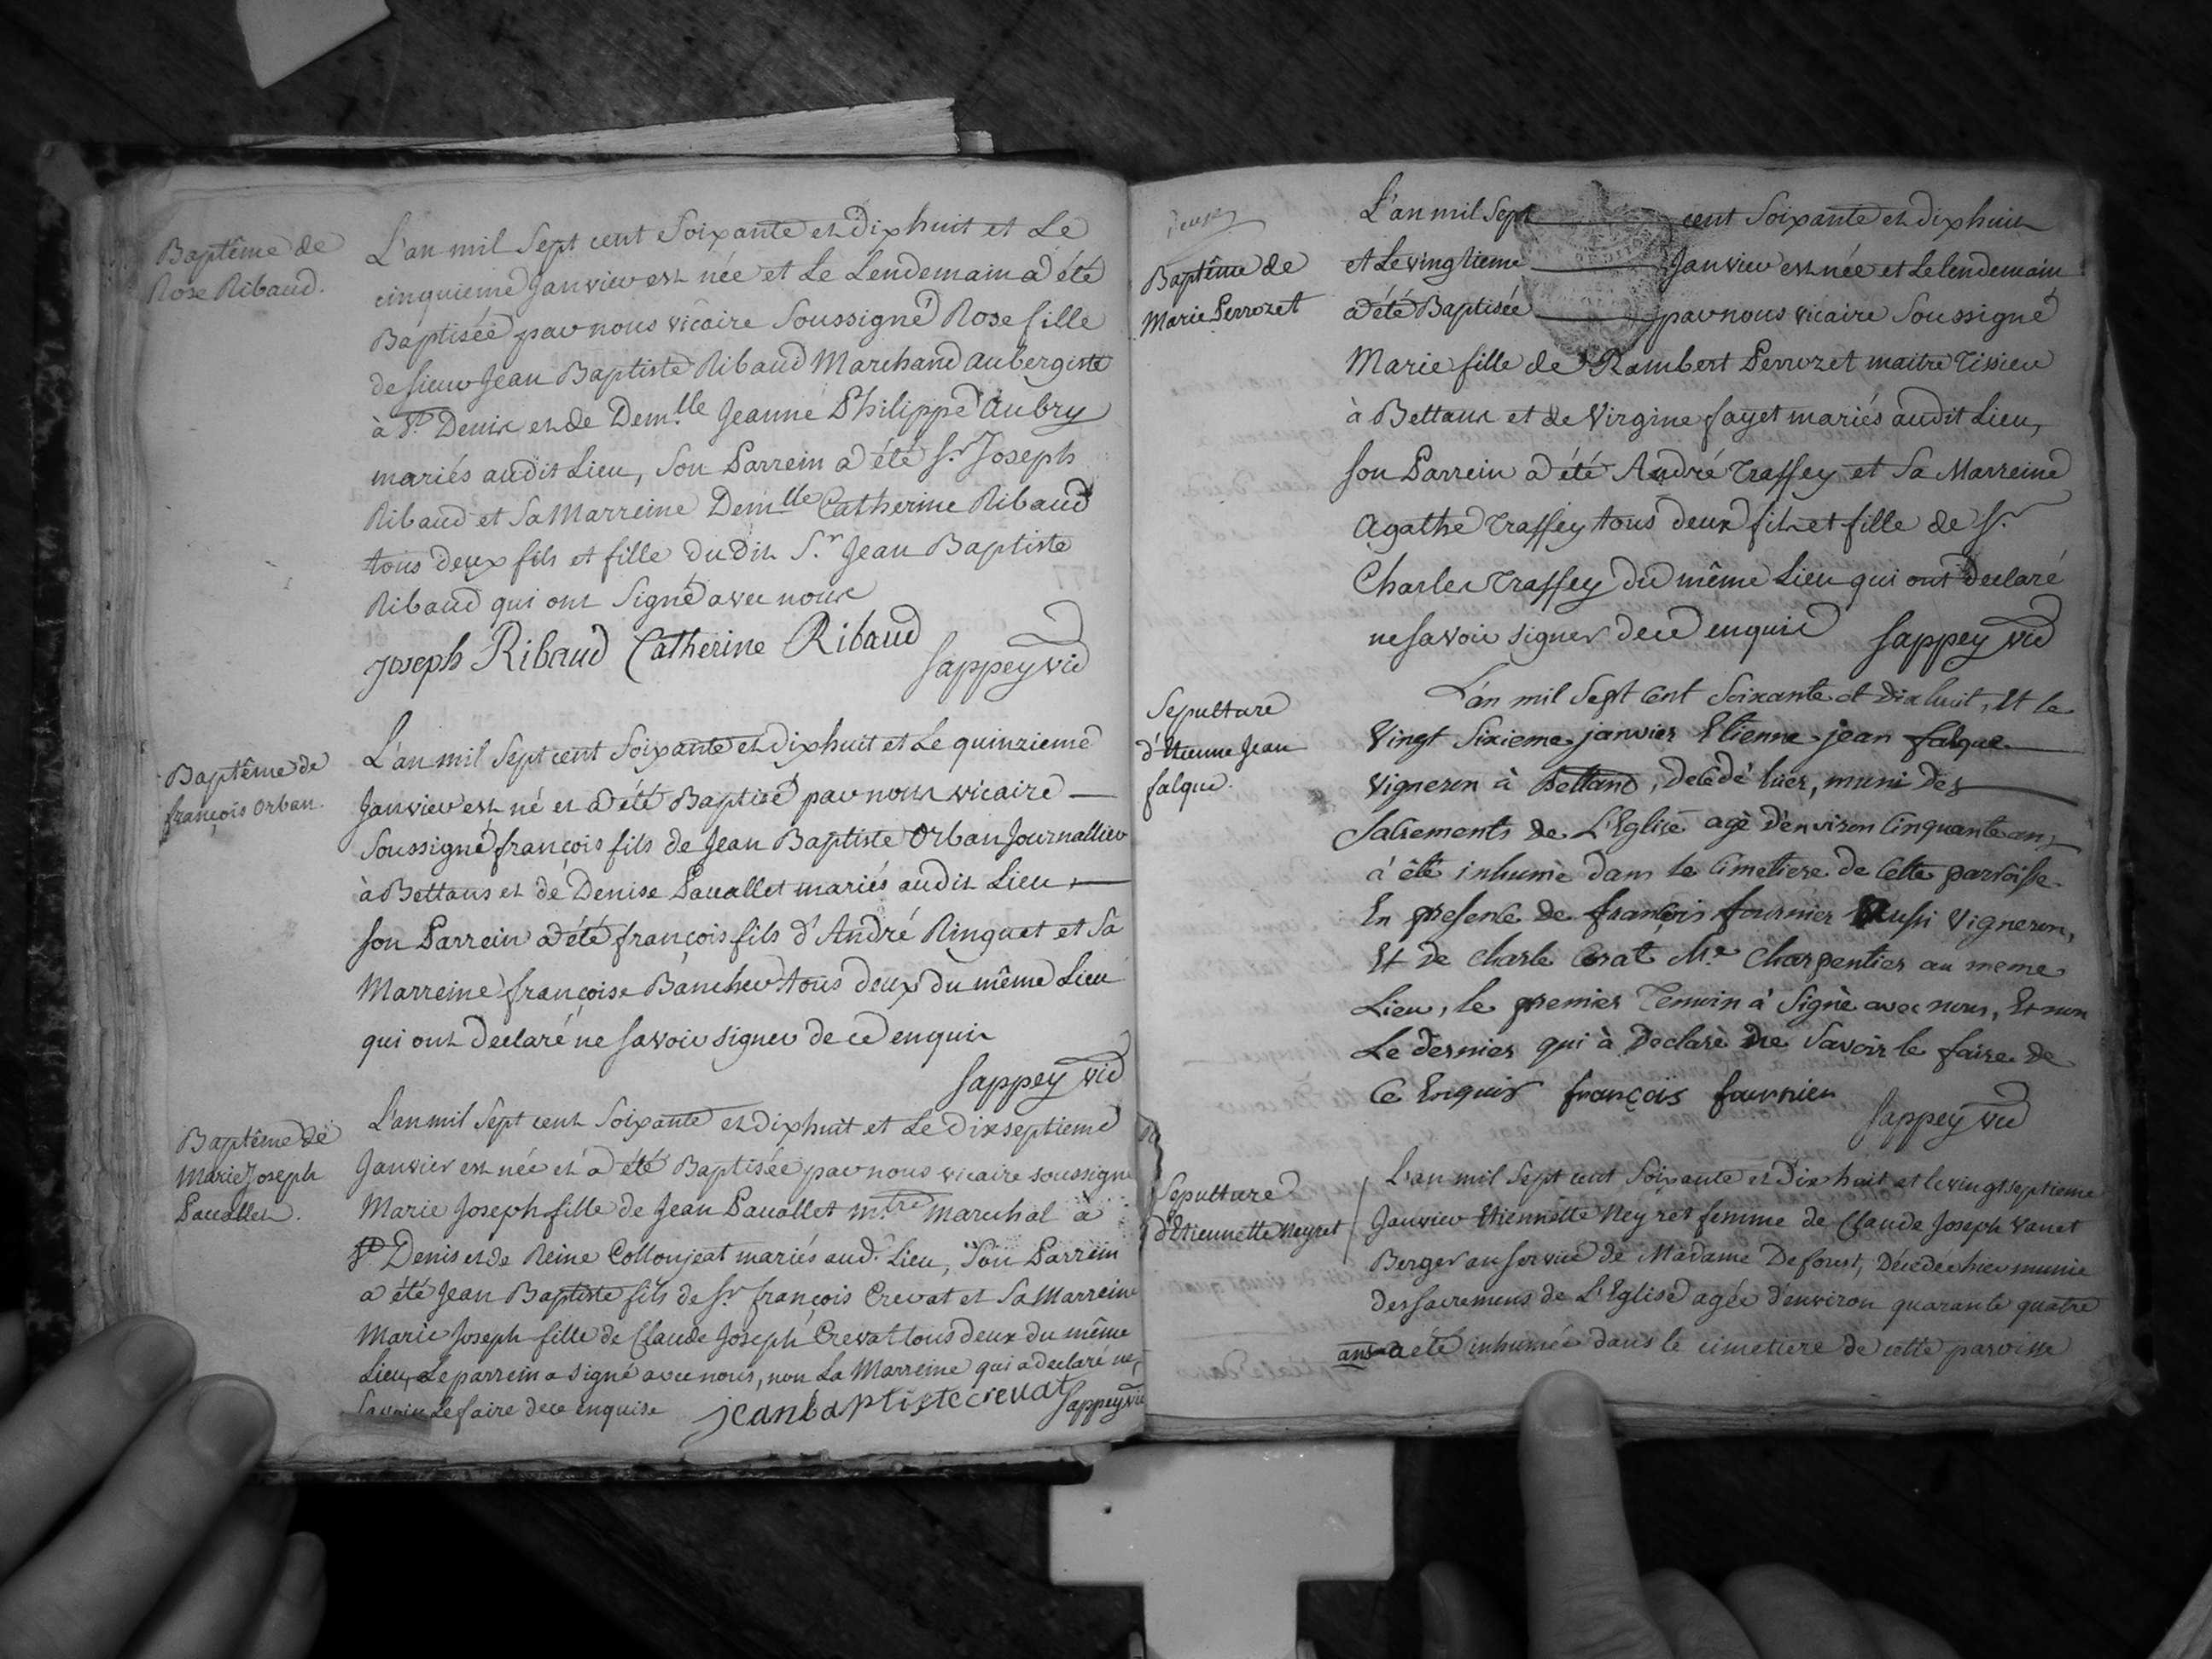 Baptême de
Rose Ribaud.
L'an mil Sept cent Soixante et Dix huit et Le
cinquieme Janvier est née et Le Lendemain a été
Baptisée par nous vicaire Soussigné Rose fille
de sieur Jean Baptiste Ribaud Marchand aubergiste
à St. Denis et de Dem.lle Jeanne Philippe Aubry
mariés audit Lieu, Son Parrein a été Sr. Joseph
Ribaud et Sa Marreine Dem.lle Catherine Ribaud
tous deux fils et fille du dit S.r Jean Baptiste
Ribaud qui ont Signé avec nous
Joseph Ribaud Catherine Ribaud
Sappey vic
Baptême de
françois Orban.
L'an mil Sept cent Soixante et Dixhuit et Le quinzieme
Janvier est né et a été Baptisé par nous vicaire
Soussigné françois fils de Jean Baptiste Orban Journallier
à Bettans et de Denise Pauallet mariés audit Lieu,
son Parrein a été françois fils d'André Ringuet et Sa
Marreine françoise Bancher tous deux du même Lieu
qui ont Declaré ne savoir signer de ce enquis
Sappey vic
Baptême de
Marie Joseph
Pauallet.
L'an mil Sept cent Soixante et Dixhuit et Le Dixseptieme
Janvier est née et a été Baptisée par nous vicaire soussigné
Marie Joseph fille de Jean Pauallet m.tre marechal à
St Denis et de Reine Collonjeat mariés aud. Lieu, Son Parrein
a été Jean Baptiste fils de Sr françois Crevat et Sa Marreine
Marie Joseph fille de Claude Joseph Crevat tous deux du même
Lieu, Le parrein a signé avec nous, non La Marreine qui a declaré ne
Savoir Le faire de ce enquise jean baptiste crevat Sappey vic
Baptême de
Marie Perrozet
L'an mil Sept cent Soixante et dixhuit
et Le vingtieme Janvier est née et Le lendemain
a été Baptisée par nous vicaire Soussigné
Marie fille de Rambert Perrozet maitre Tissieu
à Bettans et de Virgine fayet mariés audit Lieu,
son Parrein a été André Traffey et Sa Marreine
Agathe Traffey tous deux fils et fille de Sr.
Charles Traffey du même Lieu qui ont declaré
ne savoir signer de ce enquis Sappey vic
Sepulture
d'Etienne Jean
falque.
L'an mil Sept Cent Soixante et Dixhuit, Et le
Vingt Sixieme janvier Etienne jean falque
Vigneron à Bettans, decedé hier, muni des
Sacrements de L'Eglise agé d'environ Cinquante ans
à été inhumé dans le Cimetiere de Cette parroisse
En presence de françois fournier Aussi Vigneron,
Et de Charle Corat Me. Charpentier au meme
Lieu, le premier Temoin à Signé avec nous, Et non
Le dernier qui à Declaré ne Savoir le faire de
Ce Enquis françois fournier
Sappey vic
Sepulture
d'Etiennette Neyret
L'an mil Sept cent Soixante et Dix huit et le vingt septieme
Janvier Etiennette Neyret femme de Claude Joseph Vanet
Berger au service de Madame Deforest, Décédée hier munie
des sacremens de L'Eglise agée d'environ quarante quatre
ans a été inhumée dans le cimetiere de cette paroisse